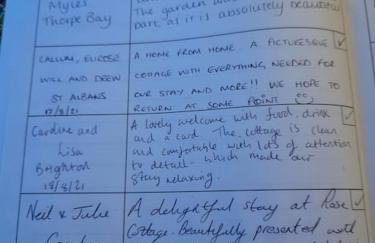 Myles
Thorpe Bay
The garden was
part as it is absolutely beautiful
CALLUM,
WILL AND DREW
ST ALBANS
17/8/21
A HOME FROM HOME. A PICTURESQUE
COTTAGE WITH EVERYTHING NEEDED FOR
OUR STAY AND MORE!! WE HOPE TO
RETURN AT SOME POINT
Caroline and
Lisa
Brighton
18/8/21
A lovely welcome with food, drink
and a card. The cottage is clean
and comfortable with lots of attention
to detail - which made our
stay relaxing.
Neil & Julie
A delightful stay at Rose
Cottage. Beautifully presented with